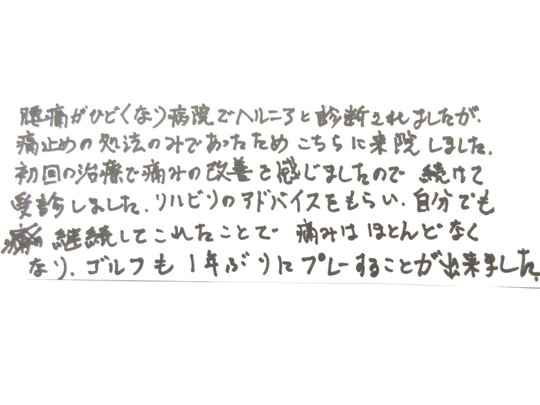 腰痛がひどくなり病院でヘルニアと診断されましたが、
痛止めの処法のみであったため こちらに来院しました。
初回の治療で痛みの改善を感じましたので 続けて
受診しました。リハビリのアドバイスをもらい、自分でも
継続してこれたことで 痛みは ほとんどなく
なり、ゴルフも1年ぶりにプレーすることが出来ました。